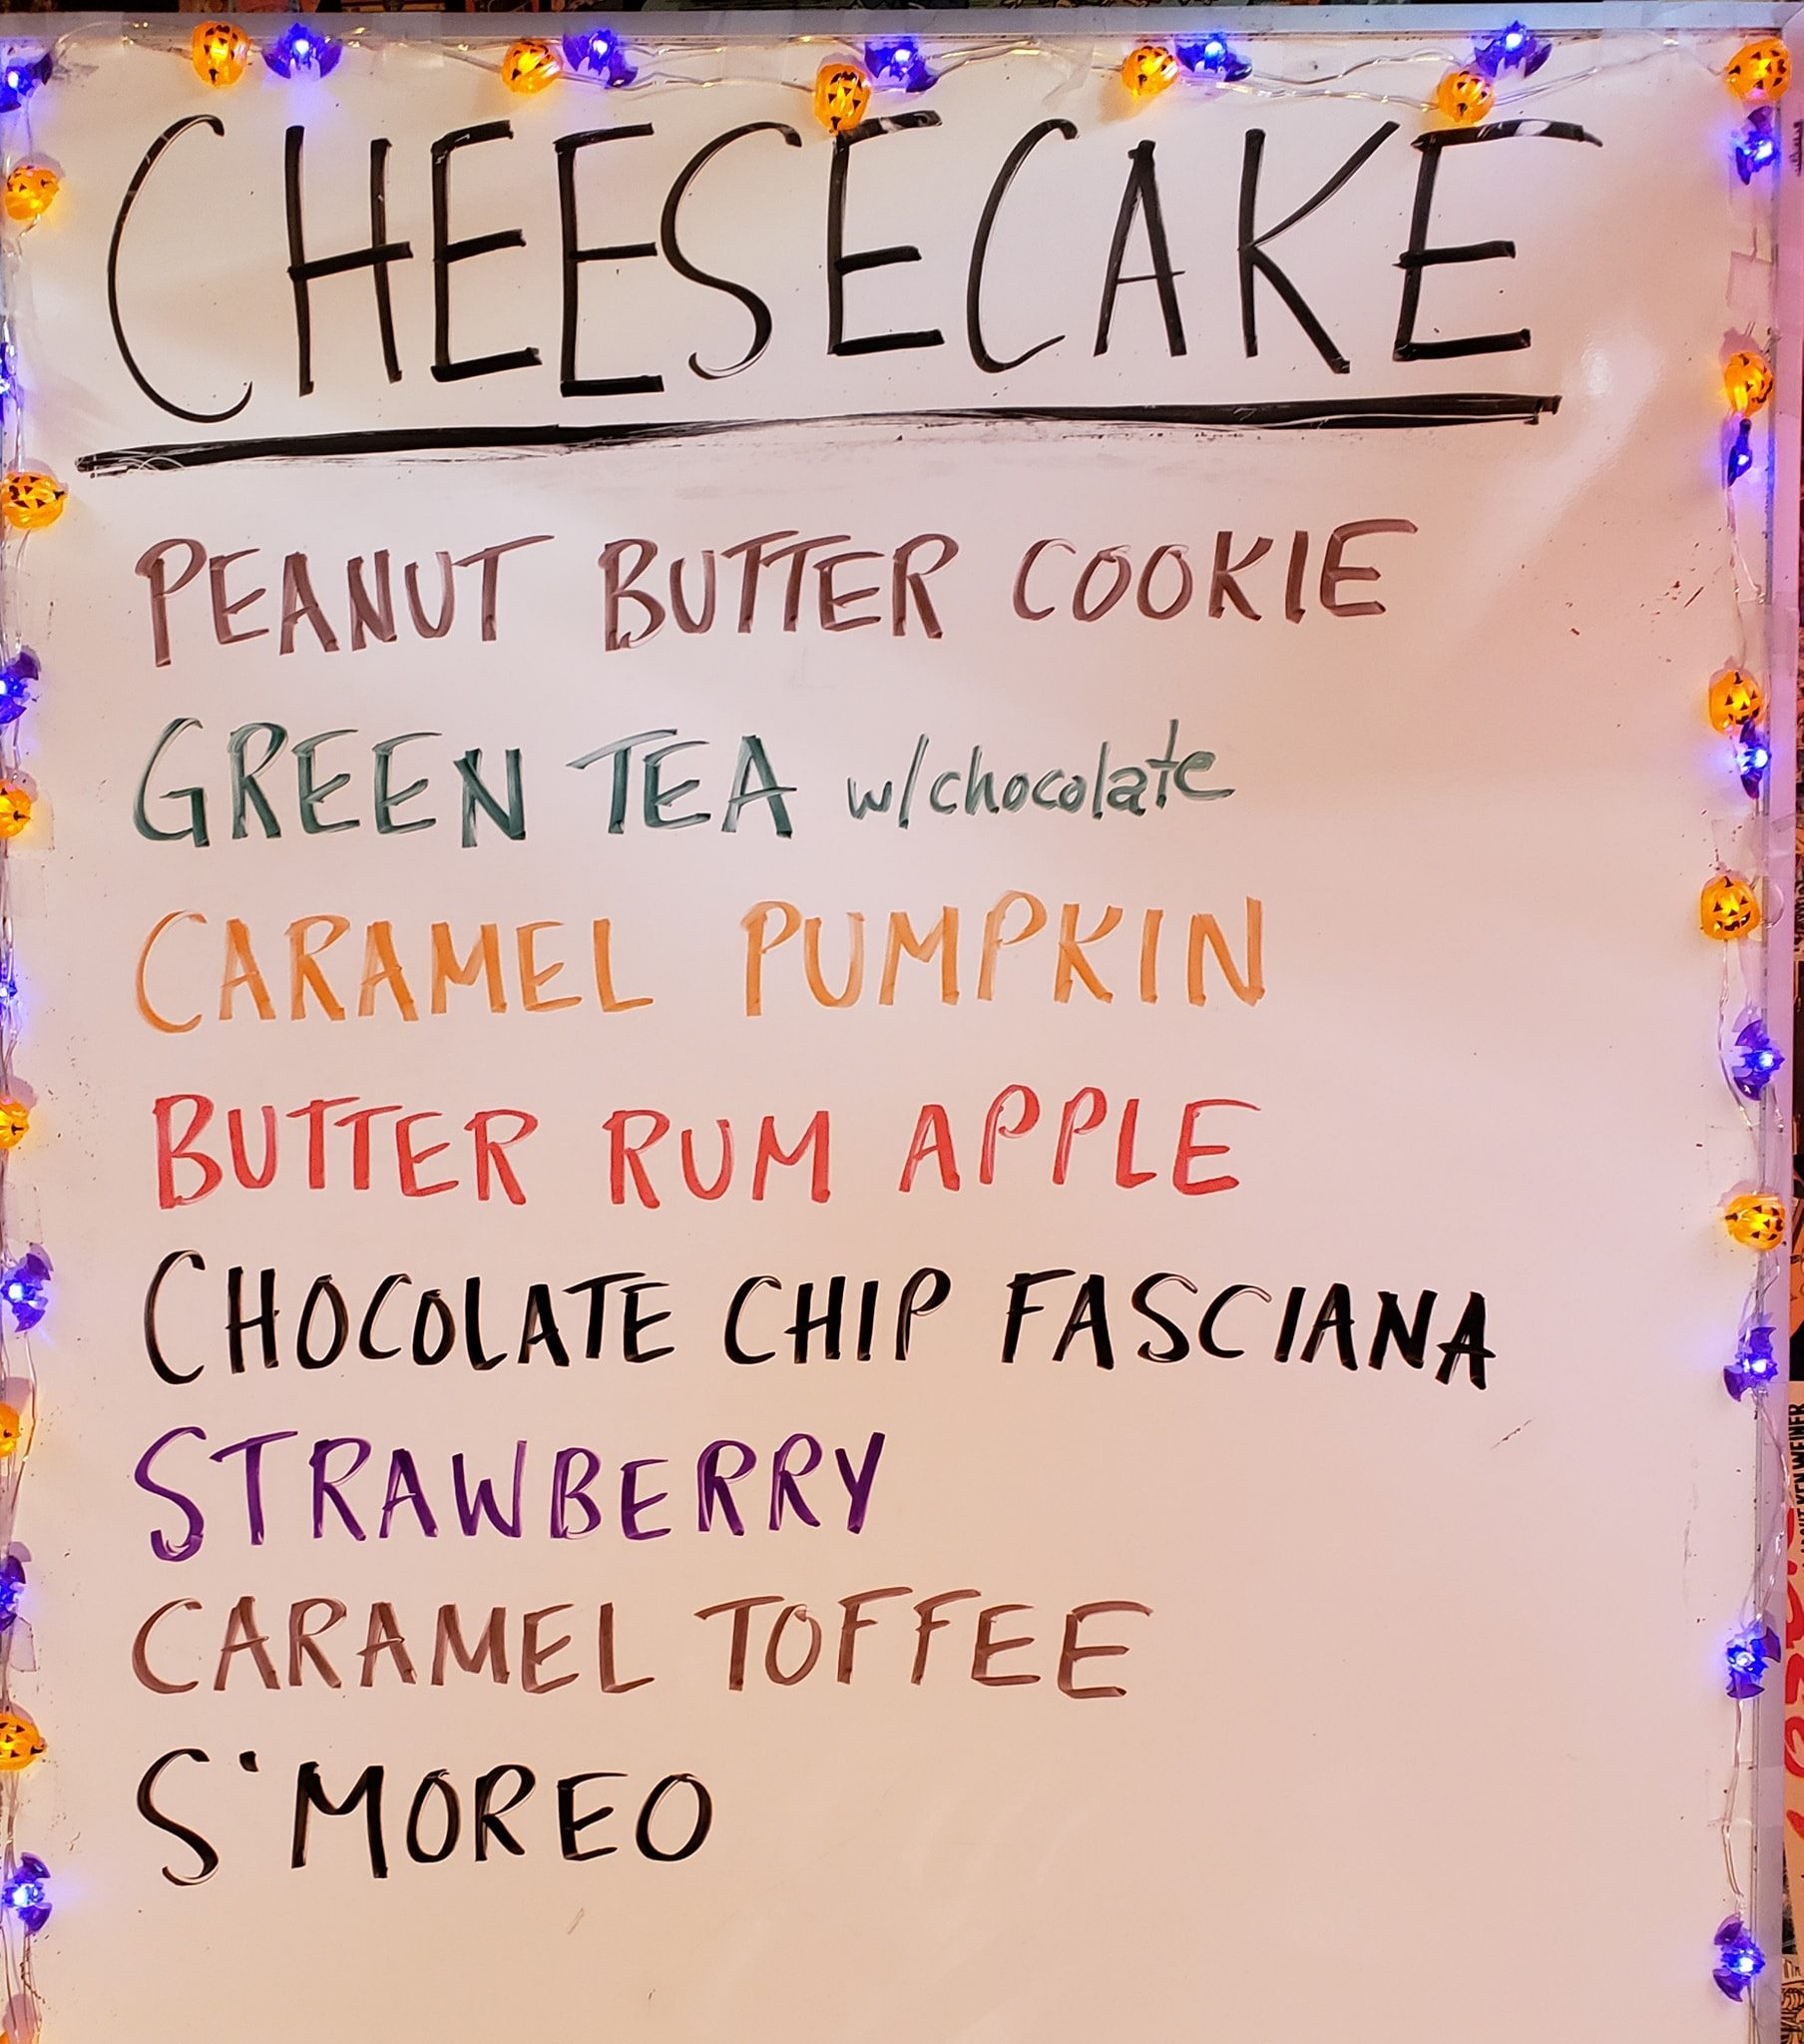 CHEESECAKE
PEANUT BUTTER COOKIE
GREEN TEA w/chocolate
CARAMEL PUMPKIN
BUTTER RUM APPLE
CHOCOLATE CHIP FASCIANA
STRAWBERRY
CARAMEL TOFFEE
S'MOREO